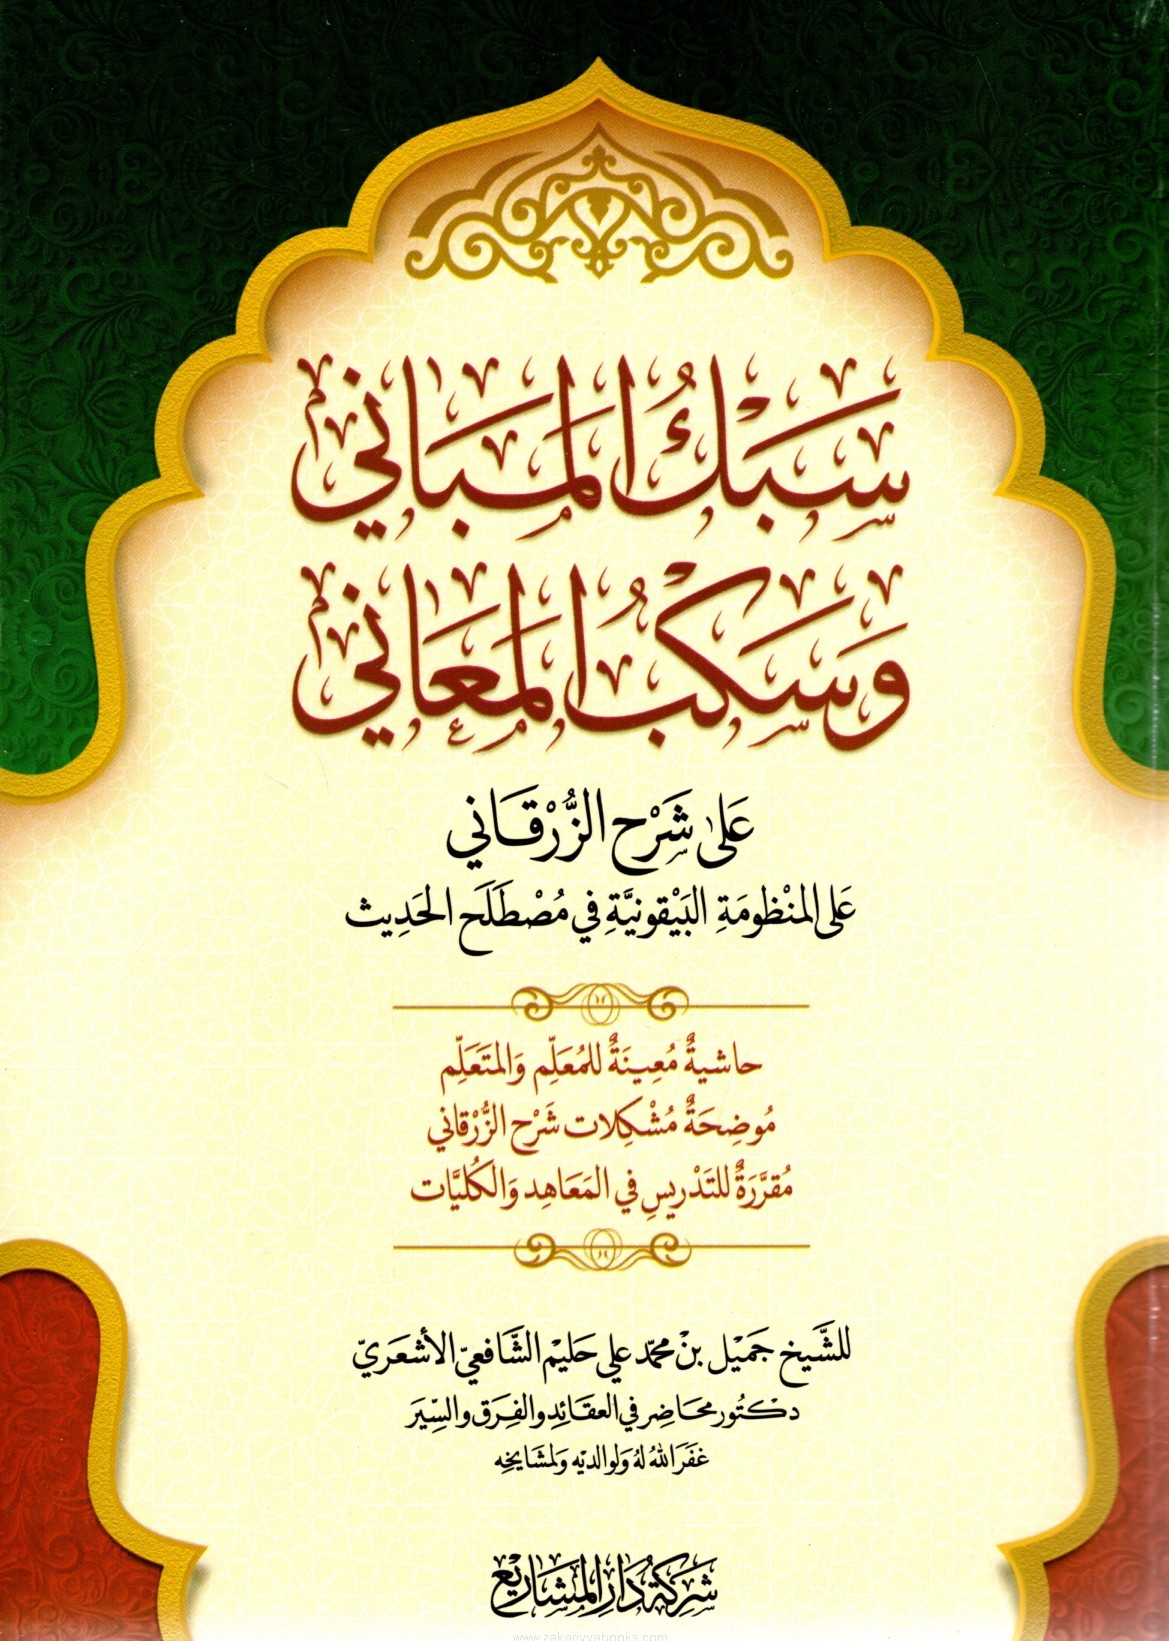 سَبْكُ المَبَاني
وَسَكْبُ المَعَاني
عَلى شَرْح الزُّرْقَاني
عَلى المنْظومَةِ البَيْقونيَّةِ في مُصْطَلَح الحَدِيث
حاشيةٌ مُعِينَةٌ للمُعَلِّم وَالمتَعَلِّم
مُوضِحَةٌ مُشْكِلات شَرْح الزُّرْقاني
مُقرَّرَةٌ للتَدْريسِ في المَعَاهِد وَالكُليَّات
للشَّيخ جَمَيْل بنْ محمّد علي حَليْم الشَّافعيّ الأشعَريّ
دكتُور محَاضِر في العقَائِد والفِرَق والسِّيَر
غفَرَ اللهُ لهُ وَلوالديْه وَلمشَايخِه
شركة دَار المشَاريْع
www.zakariyyabooks.com